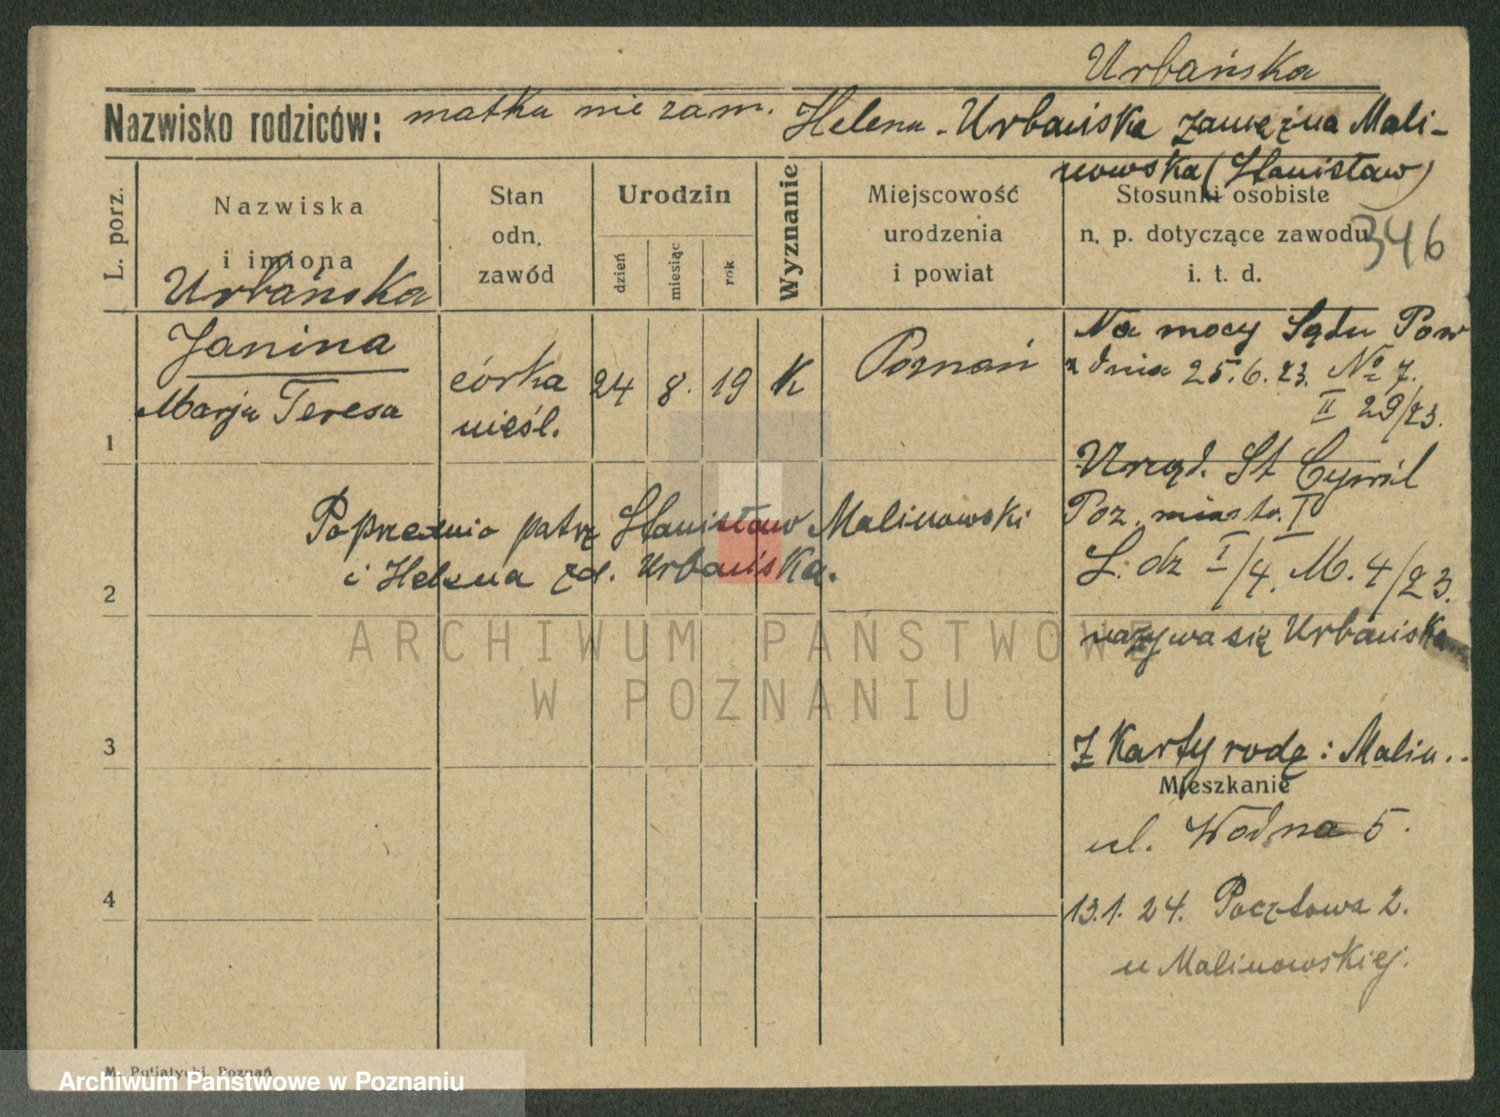 Urbańska
Nazwisko rodziców: matka nie zam. Helena - Urbańska zamężna Mali-
nowska (Stanisław)
L. porz.
Nazwiska
i imiona
Stan
odn.
zawód
Urodzin
dzień
miesiąc
rok
Wyznanie
Miejscowość
urodzenia
i powiat
Stosunki osobiste
n. p. dotyczące zawodu
i. t. d.
346
Urbańska
1
Janina
Marja Teresa
córka
nieśl.
24
8.
19
K
Poznań
Na mocy Sądu Pow
z dnia 25.6.23. No 7.
II 29/23.
Urząd. St Cywil
Poz. miasto. I
L. dz I/4. M. 4/23.
nazywa się Urbańska
2
Poprzednio patrz Stanisław Malinowski
i Helena zd. Urbańska.
3
Z Karty rodz: Malin..
Mieszkanie
ul. Wodna 5.
4
13.1.24. Pocztowa 2.
u Malinowskiej.
ARCHIWUM PAŃSTWOWE
W POZNANIU
M. Putiatycki, Poznań
Archiwum Państwowe w Poznaniu